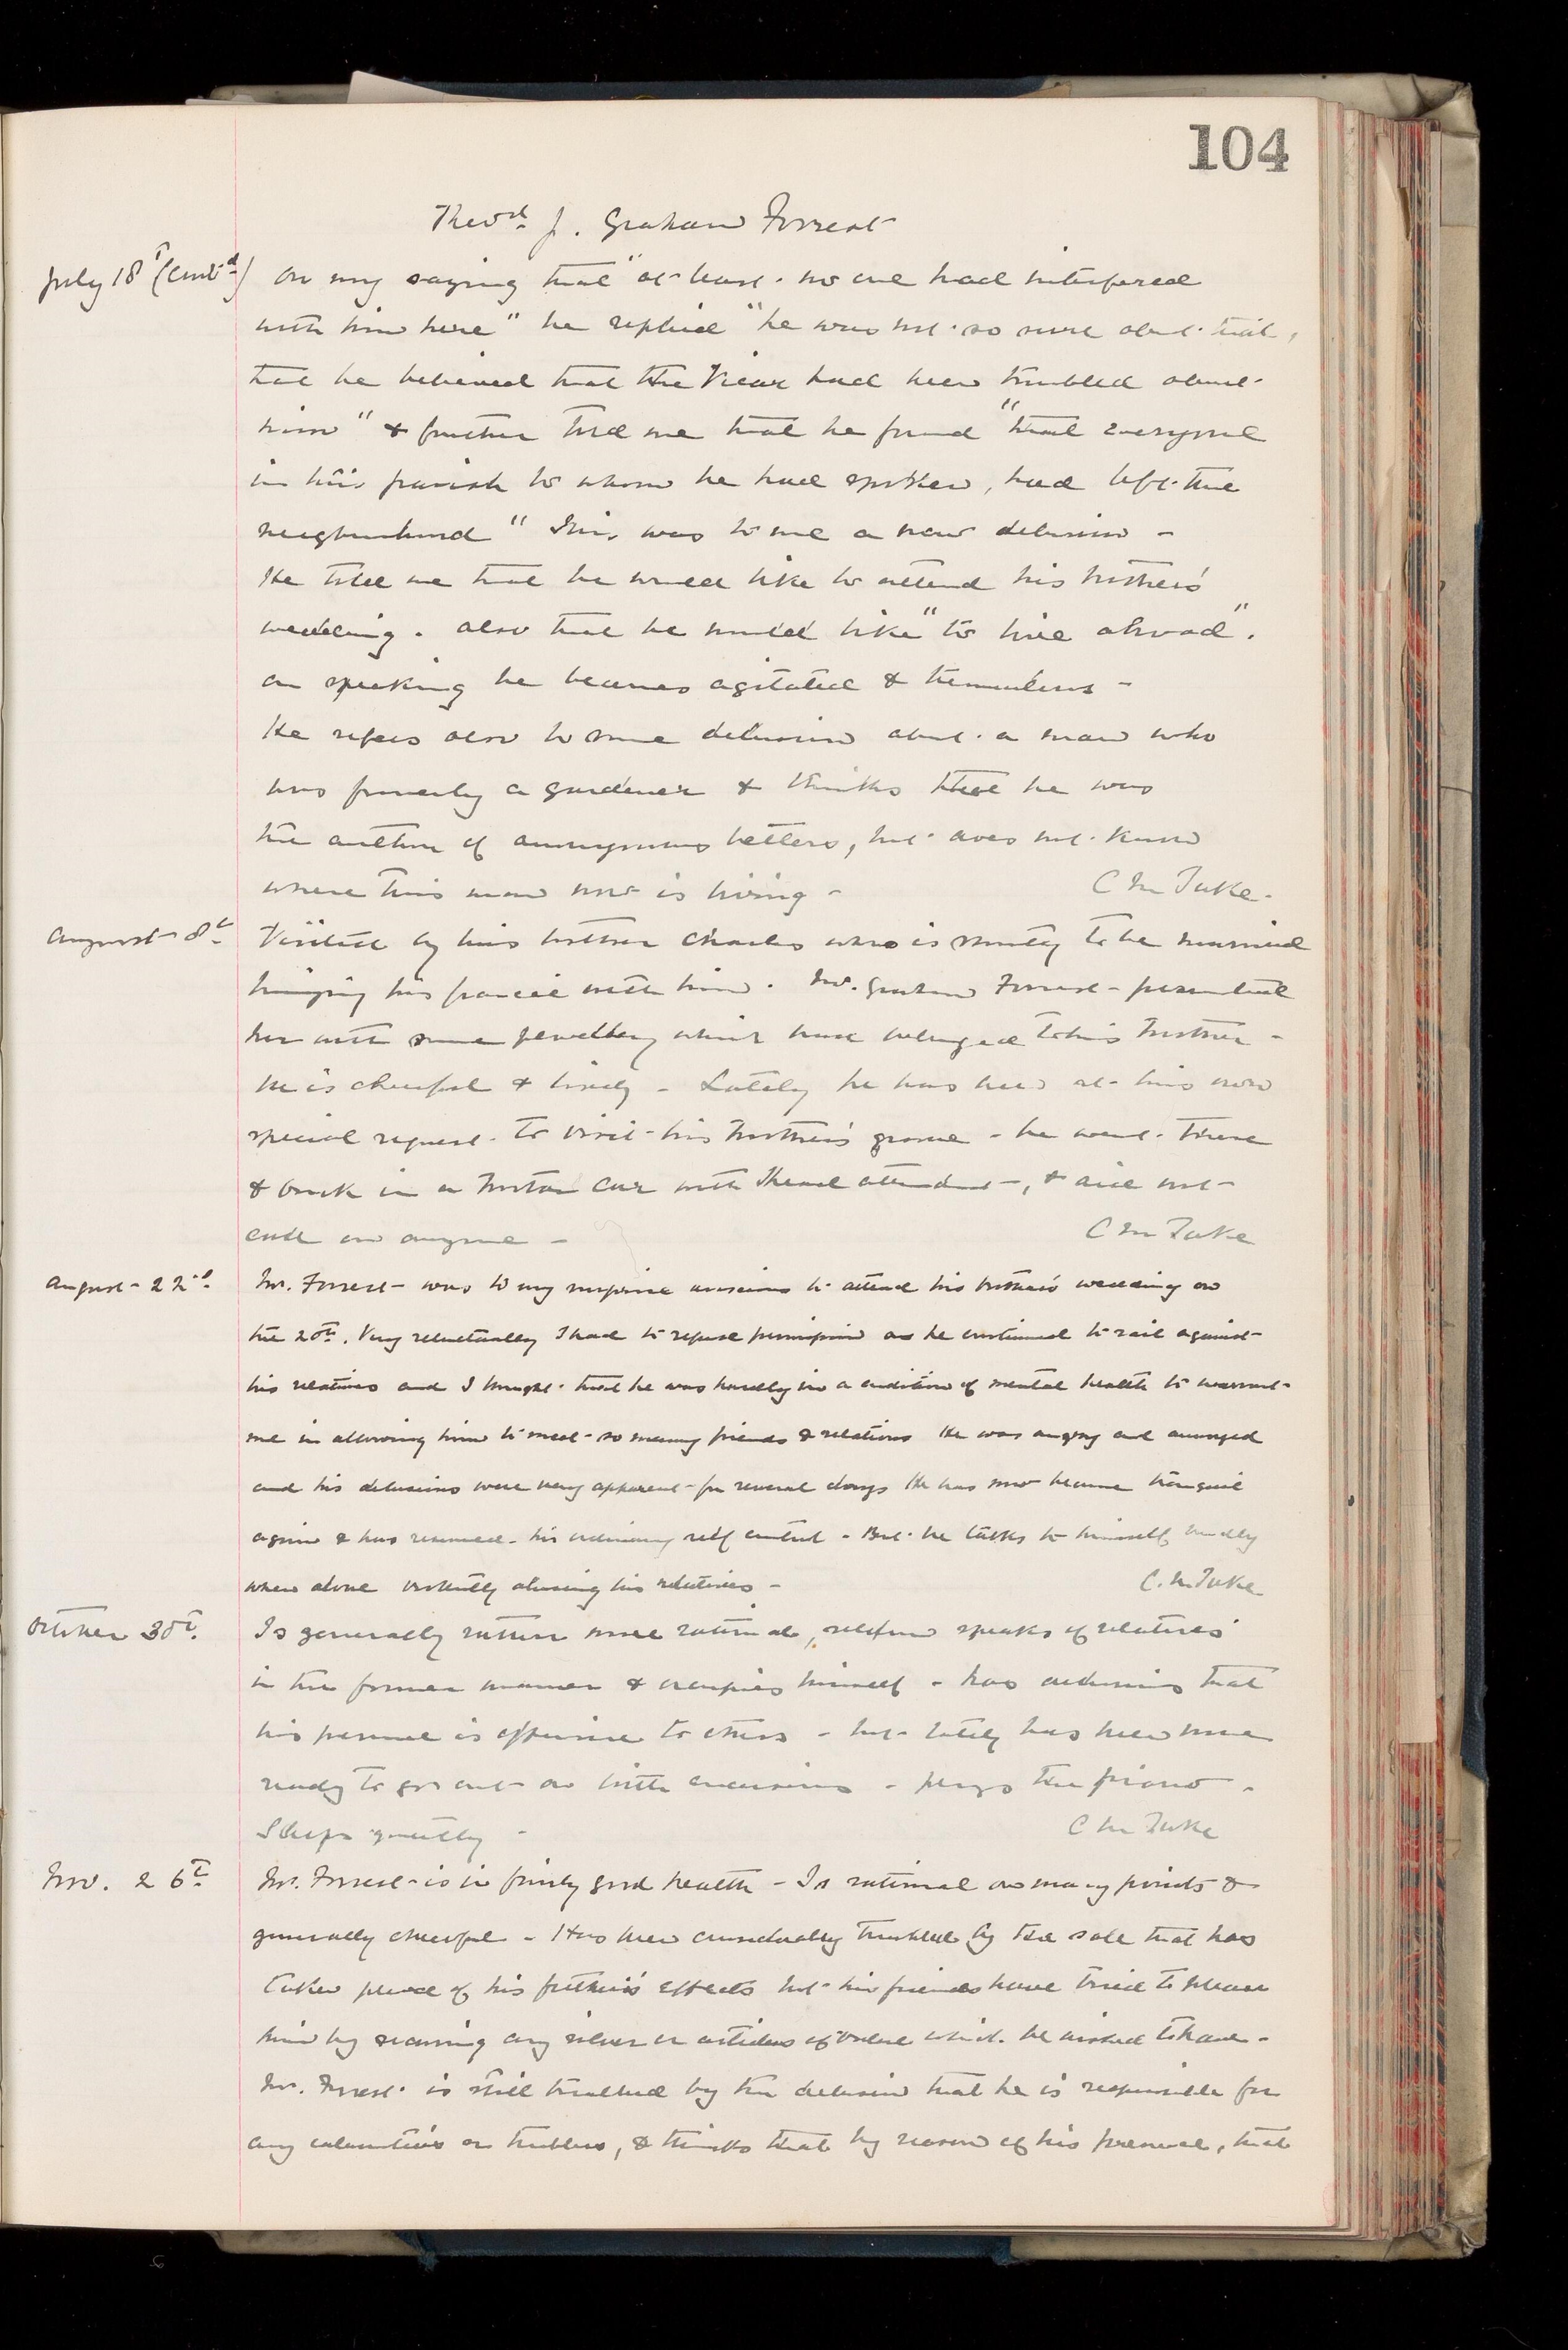 104
Theod. J. Graham Forrest
July 18th (Contd) On my saying that "at least no one had interfered
with him here" he replied "he was not so sure about that,
that he believed that the Vicar had been troubled about
him" & further told me that he found "that everyone
in this parish to whom he had spoken, had left the
neighbourhood" This was to me a new delusion -
He told me that he would like to attend his brother's
wedding. also that he would like "to live abroad".
On speaking he becomes agitated & tremulous -
He refers also to some delusion about a man who
was formerly a gardener & thinks that he was
the author of anonymous letters, but does not know
where this man now is living - C M Tuke.
August 8th Visited by his brother Charles who is shortly to be married
bringing his fiancée with him. Mr. Graham Forrest presented
her with some jewellery which had belonged to his mother -
He is cheerful & lively - Lately he has been at his own
special request to visit his mother's grave - he went there
& back in a motor car with Head attendant, & did not
call on anyone - C M Tuke
August 22nd Mr. Forrest was to my surprise anxious to attend his brother's wedding on
the 20th. Very reluctantly I had to refuse permission as he continued to rail against
his relatives and I thought that he was hardly in a condition of mental health to warrant
me in allowing him to meet so many friends & relations He was angry and annoyed
and his delusions were very apparent for several days He has now become tranquil
again & has resumed his ordinary self control - But he talks to himself loudly
when alone violently abusing his relatives - C. M Tuke
October 30th. Is generally rather more rational, seldom speaks of relatives
in the former manner & occupies himself - has delusions that
his presence is offensive to others - but lately has been more
ready to go out on little excursions - plays the piano -
Sleeps quietly - C M Tuke
Nov. 26th Mr. Forrest is in fairly good health - Is rational on many points &
generally cheerful - Has been considerably troubled by the sale that has
taken place of his father's effects but his friends have tried to please
him by reserving any silver or articles of value which he wished to have -
Mr. Forrest is still troubled by the delusion that he is responsible for
any calamities or troubles, & thinks that by reason of his presence, that